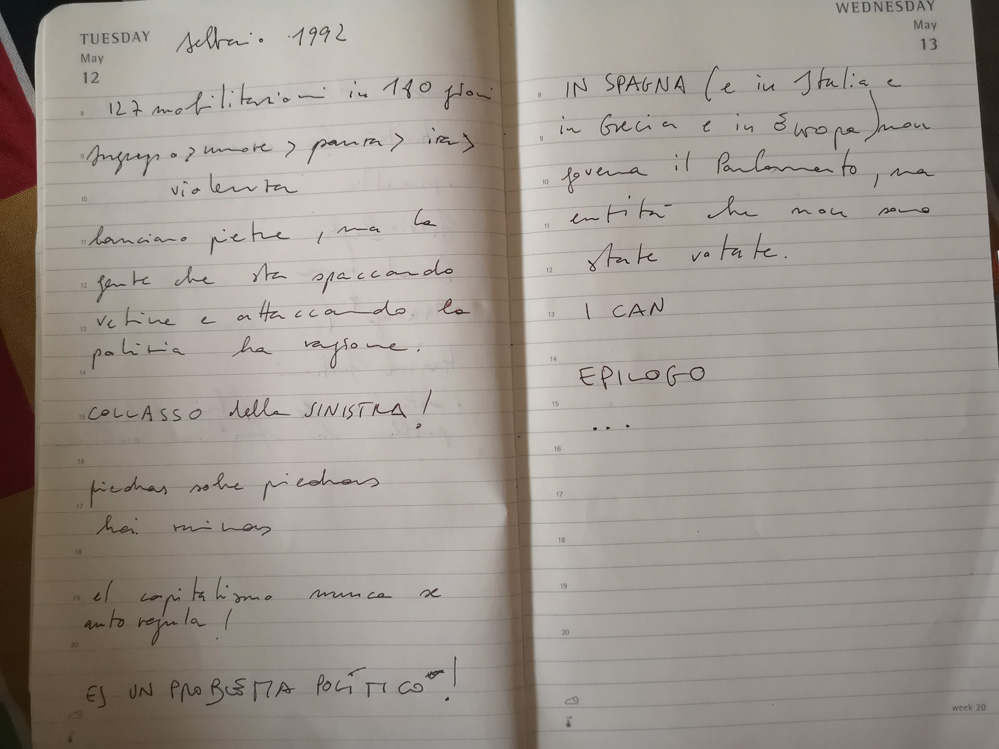 TUESDAY
May
12
1992
127 mobilitazioni in 180 giorni
> umore > paura > ira >
violenza
lanciano pietre, ma la
gente che sta spaccando
vetrine e attaccando la
polizia ha ragione.
COLLASSO della SINISTRA!
piedras sobre piedras
hai minas
el capitalismo nunca se
auto regula!
ES UN PROBLEMA POLÍTICO!
8
9
10
11
12
13
14
15
16
17
18
19
20
WEDNESDAY
May
13
IN SPAGNA (e in Italia e
in Grecia e in Europa) non
governa il Parlamento, ma
entità che non sono
state votate.
I CAN
EPILOGO
...
8
9
10
11
12
13
14
15
16
17
18
19
20
week 20